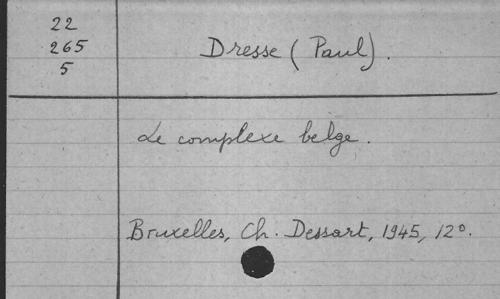 22
265
5
Dresse (Paul).
Le complexe belge.
Bruxelles, Ch. Dessart, 1945, 12°.